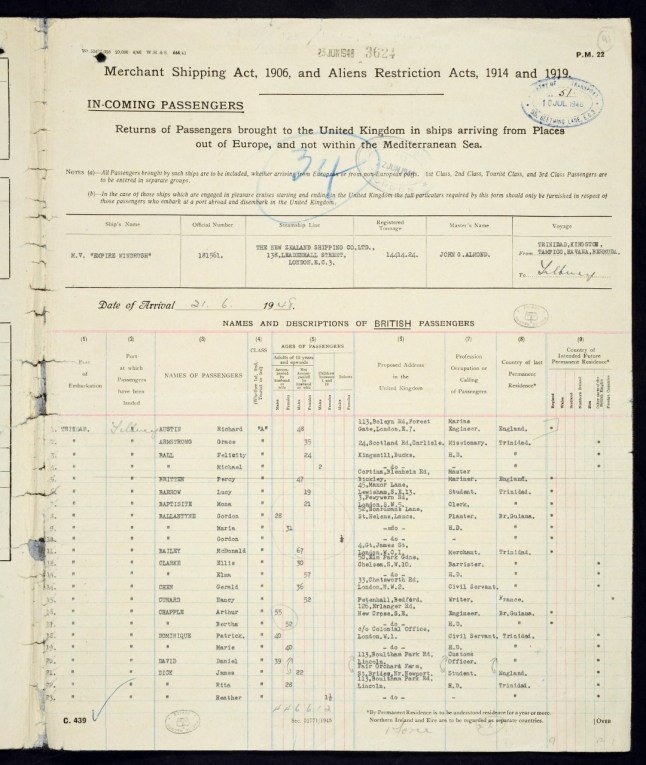 23 JUN 1948 3624
P.M. 22
Merchant Shipping Act, 1906, and Aliens Restriction Acts, 1914 and 1919.
IN-COMING PASSENGERS
51
16 JUL 1948
Returns of Passengers brought to the United Kingdom in ships arriving from Places
out of Europe, and not within the Mediterranean Sea.
34
NOTES (a)—All Passengers brought by such ships are to be included, whether arriving from European or from non-European ports. 1st Class, 2nd Class, Tourist Class, and 3rd Class Passengers are
to be entered in separate groups.
(b)—In the case of those ships which are engaged in pleasure cruises starting and ending in the United Kingdom the full particulars required by this form should only be furnished in respect of
those passengers who embark at a port abroad and disembark in the United Kingdom.
Ship's Name Official Number Steamship Line Registered Tonnage Master's Name Voyage
M.V. "EMPIRE WINDRUSH" 181561. THE NEW ZEALAND SHIPPING CO,LTD., 14414.24. JOHN C.ALMOND. From TRINIDAD,KINGSTON,
138,LEADENHALL STREET, TAMPICO,HAVANA,BERMUDA.
LONDON.E.C.3. To Tilbury
Date of Arrival 21. 6 1948.
NAMES AND DESCRIPTIONS OF BRITISH PASSENGERS
(1) (2) (3) (4) (5) (6) (7) (8) (9)
Port of Embarkation
Port at which Passengers have been landed
NAMES OF PASSENGERS
CLASS
AGES OF PASSENGERS
Adults of 12 years and upwards
Children between 1 and 12
Infants
Proposed Address in the United Kingdom
Profession Occupation or Calling of Passengers
Country of last Permanent Residence*
Country of Intended Future Permanent Residence*
England
Wales
Scotland
Northern Ireland
TRINIDAD. Tilbury AUSTIN Richard "A" 48 113,Boleyn Rd,Forest Gate,London,E.7. Marine Engineer. England. *
" " ARMSTRONG Grace " 35 24,Scotland Rd,Carlisle. Missionary. Trinidad. *
" " BALL Felicity " 24 Kingshill,Bucks. H.D. " *
" " " Michael " 2 - do - " *
" " BRITTEN Percy " 47 Bickley. Master Mariner. England. *
" " BARROW Lucy " 19 45,Manor Lane, Lewisham,S.E.13. Student. Trinidad. *
" " BAPTISITE Mona " 21 London,S.W.5. Clerk. " *
" " BALLANTYNE Gordon " 28 St.Helens,Lancs. Planter. Br.Guiana. *
" " " Maria " 31 -do- H.D. " *
" " " Gordon " - do - " *
" " BAILEY McDonald " 67 4,Gt.James St, London,W.C.1. Merchant. Trinidad. *
" " CLARKE Ellis " 30 50,Elm Park Gdns, Chelsea,S.W.10. Barrister. " *
" " " Elma " 57 - do - H.D. " *
" " CHEN Gerald " 36 33,Chatsworth Rd, London,N.W.2. Civil Servant. " *
" " CUNARD Nancy " 52 Petenhall,Bedford. Writer. France. *
" " CHAPPLE Arthur " 55 126,Erlanger Rd, New Cross,S.E. Engineer. Br.Guiana. *
" " " Bertha " 52 - do - H.D. " *
" " DOMINIQUE Patrick. " 40 c/o Colonial Office, London,W.1. Civil Servant. Trinidad. *
" " " Marie " 40 - do - H.D. " *
" " DAVID Daniel " 39 113,Boultham Park Rd, Lincoln. Customs Officer. " *
" " DICK James " 22 Fair Orchard Farm, St.Brides,Nr.Newport. Student. England. *
" " " Rita " 28 113,Boultham Park Rd, Lincoln. H.D. Trinidad. *
" " " Heather " 1½ - do - " *
C. 439
*By Permanent Residence is to be understood residence for a year or more.
Northern Ireland and Eire are to be regarded as separate countries.
[Over